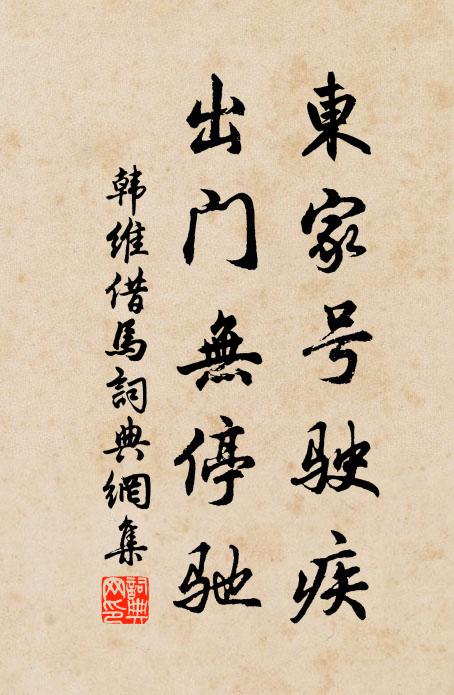 東家号駛疾
出门無停馳
韩維借馬詞典網集
詞典